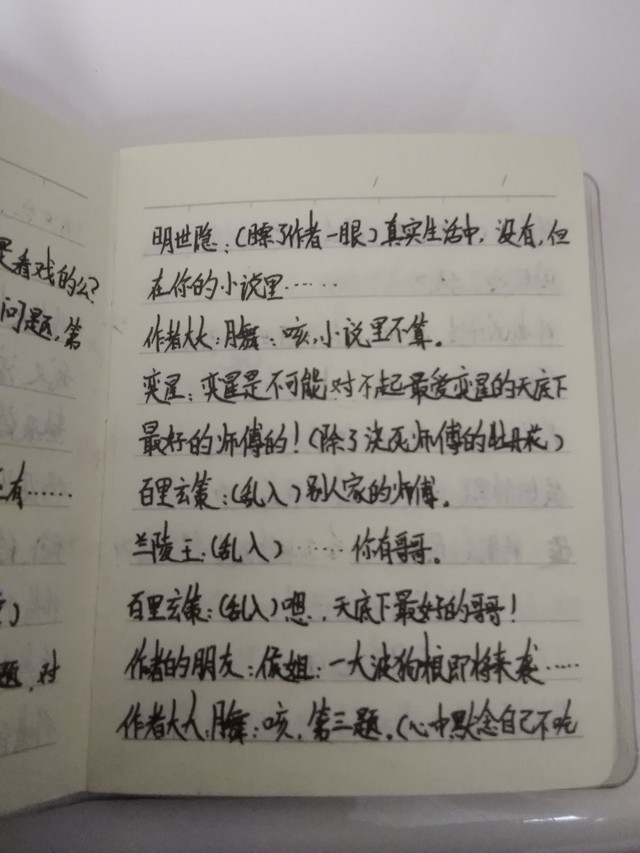 是看戏的么?
问题,第
有……
题,对
明世隐:(瞟了作者一眼)真实生活中,没有,但
在你的小说里……
作者大大:月舞:咳,小说里不算。
奕星:奕星是不可能对不起最爱奕星的天底下
最好的师傅的!(除了浇死师傅的牡丹花)
百里玄策:(乱入)别人家的师傅。
兰陵王:(乱入)……你有哥哥。
百里玄策:(乱入)嗯,天底下最好的哥哥!
作者的朋友:侯姐:一大波狗粮即将来袭……
作者大大:月舞:咳,第三题。(心中默念自己不吃